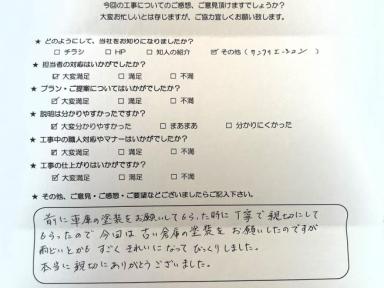 今回の工事についてのご感想、ご意見頂けますでしょうか?
大変お忙しいとは存じますが、ご協力宜しくお願い致します。
★ どのようにして、当社をお知りになりましたか?
□ チラシ □ HP □ 知人の紹介 ☑ その他(サンクリエーション)
★ 担当者の対応はいかがでしたか?
☑ 大変満足 □ 満足 □ 不満
★ プラン・ご提案についてはいかがでしたか?
☑ 大変満足 □ 満足 □ 不満
★ 説明は分かりやすかったですか?
☑ 大変分かりやすかった □ まあまあ □ 分かりにくかった
★ 工事中の職人対応やマナーはいかがでしたか?
☑ 大変満足 □ 満足 □ 不満
★ 工事の仕上がりはいかがですか?
☑ 大変満足 □ 満足 □ 不満
★ その他、ご意見・ご感想・ご要望などございましたらご記入下さい。
前に車庫の塗装をお願いしてもらった時に丁寧で親切にして
もらったので今回は古い倉庫の塗装をお願いしたのですが
雨どいとかもすごくきれいになってびっくりしました。
本当に親切にありがとうございました。